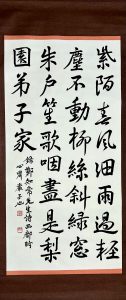 紫陌春風細雨過輕
塵不動柳絲斜綠窗
朱戶笙歌咽盡是梨
園弟子家
先生詩